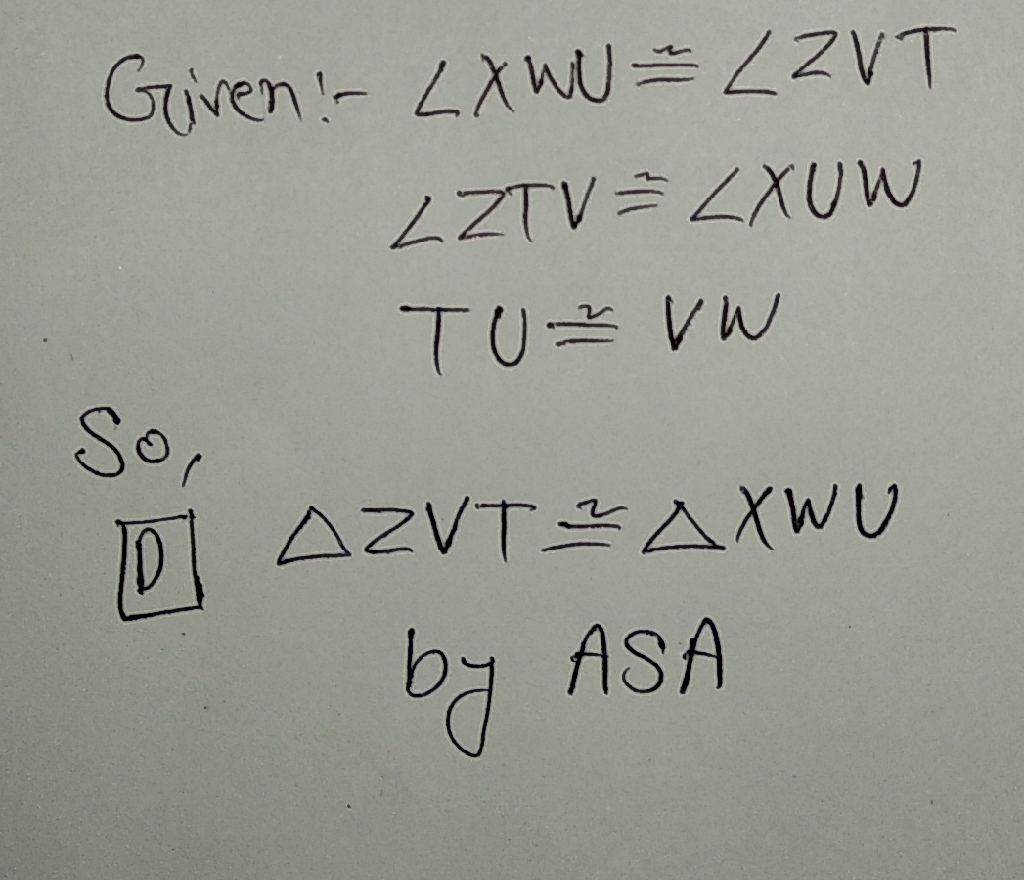 Given:- ∠XWU ≅ ∠ZVT
∠ZTV ≅ ∠XUW
TU ≅ VW
So,
D △ZVT ≅ △XWU
by ASA